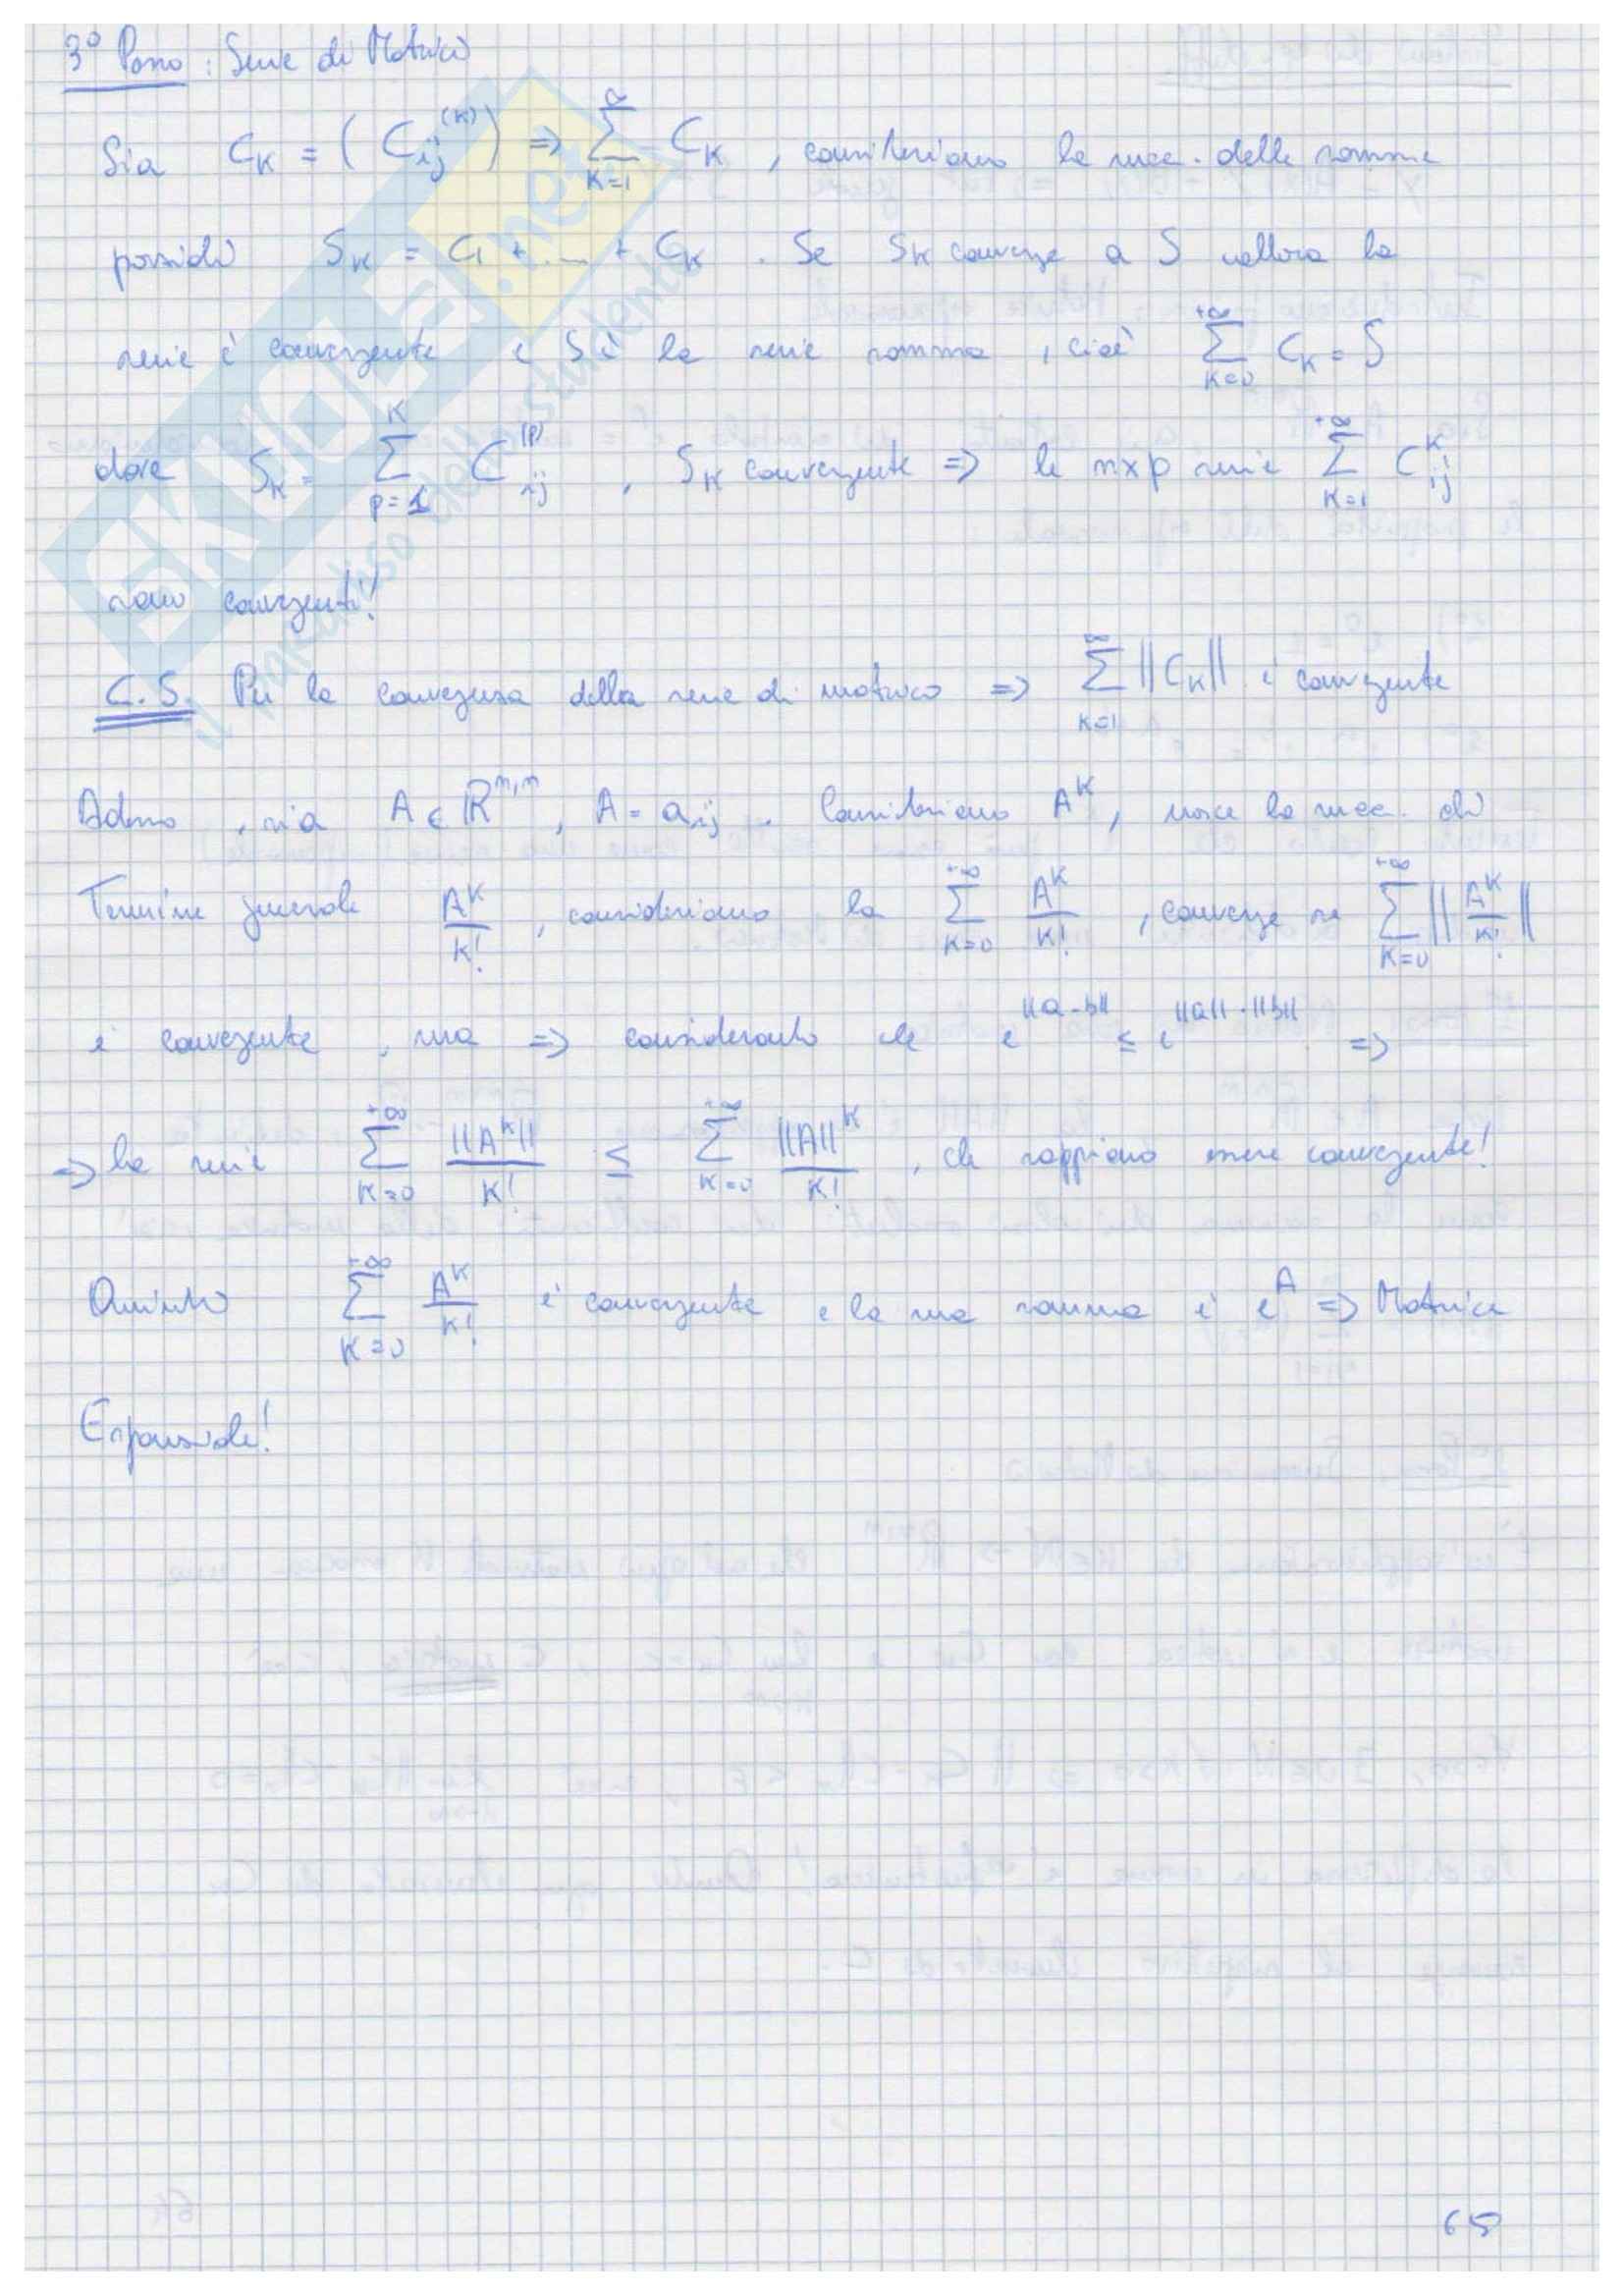 3° Passo: Serie di Matrici
Sia C_K = ( C_ij^(K) ) => ∑_{K=1}^{∞} C_K , consideriamo la succ. delle somme
parziali S_K = C_1 + ... + C_K . Se S_K converge a S allora la
serie è convergente e S è la serie somma , cioè ∑_{K=0}^{+∞} C_K = S
dove S_K = ∑_{p=1}^{K} C_ij^(p) , S_K convergente => le mxp serie ∑_{K=1}^{+∞} C_ij^K
sono convergenti!
C.S. Per la convergenza della serie di matrice => ∑_{K=1}^{∞} ||C_K|| è convergente
Adesso , sia A ∈ ℝ^{n,n} , A = a_ij . Consideriamo A^K , nasce la succ. di
Termine generale A^K/K! , consideriamo la ∑_{K=0}^{+∞} A^K/K! , converge se ∑_{K=0}^{+∞} ||A^K/K!||
è convergente , ma => considerando che e^{||a·b||} ≤ e^{||a||·||b||} =>
=> la serie ∑_{K=0}^{+∞} ||A^K||/K! ≤ ∑_{K=0}^{+∞} ||A||^K/K! , che sappiamo essere convergente!
Quindi ∑_{K=0}^{+∞} A^K/K! è convergente e la sua somma è e^A => Matrice
Esponenziale!
65
SKUOLA.net
il paradiso dello studente